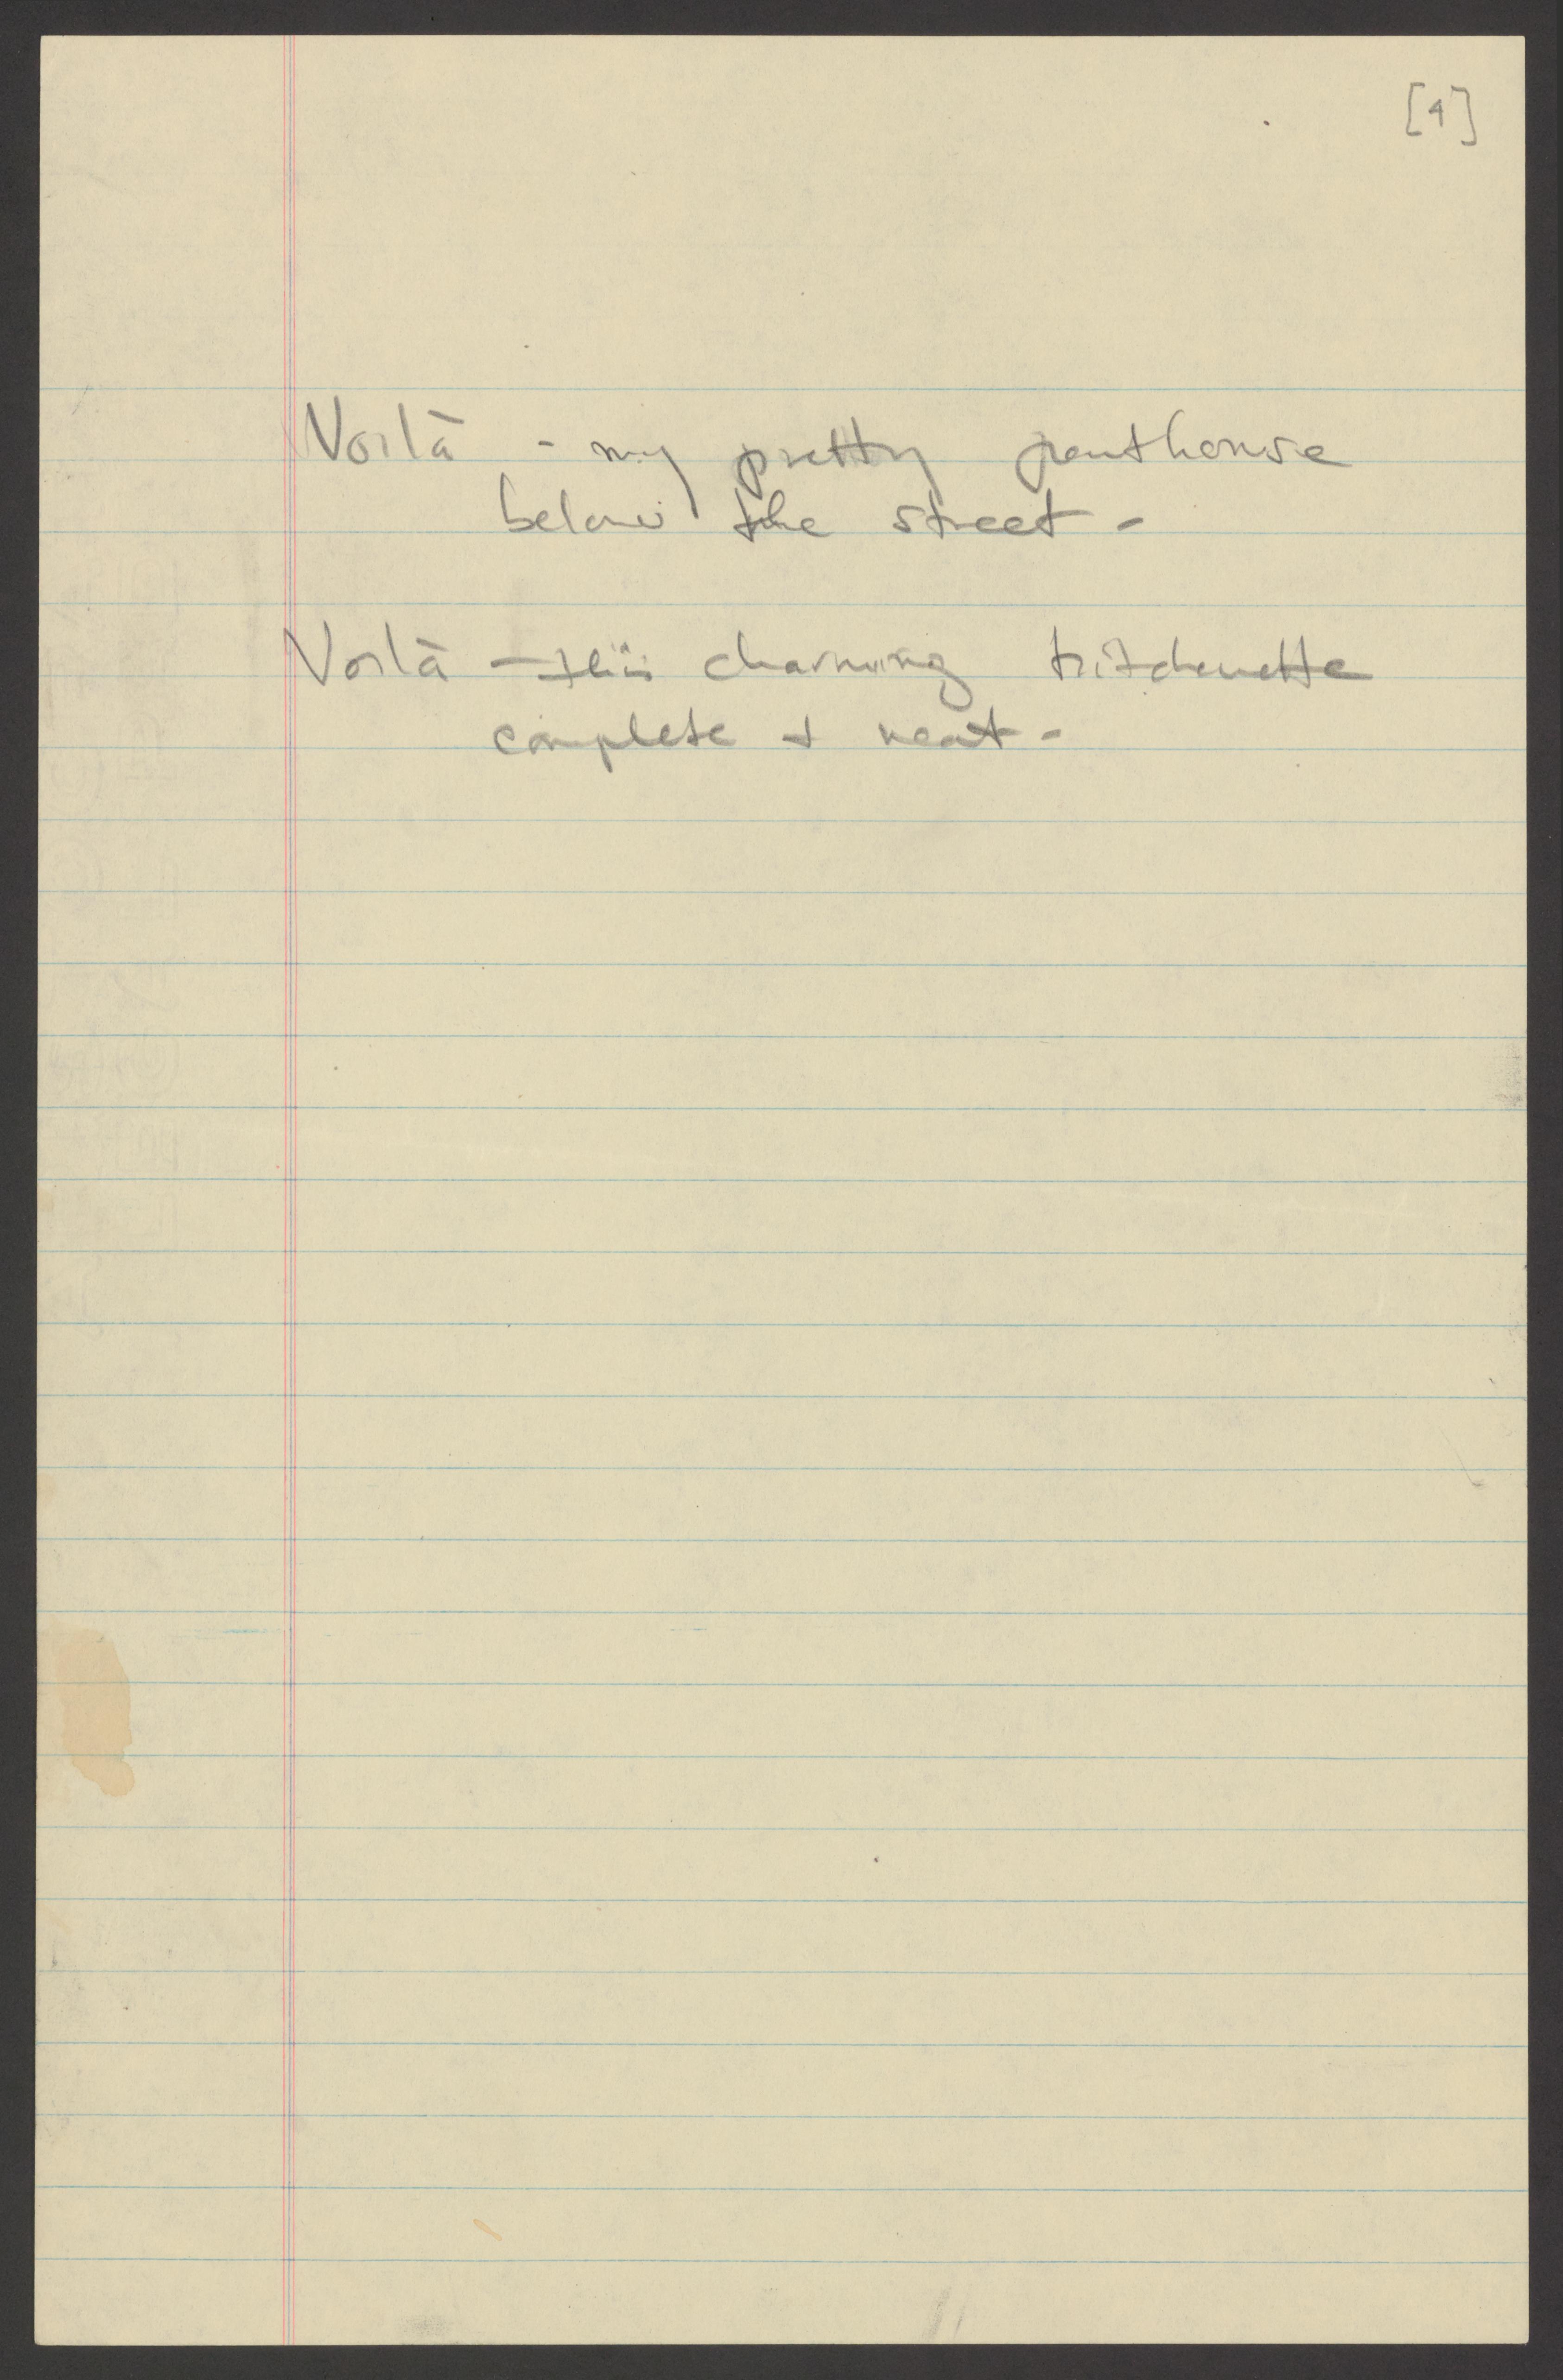 [4]
Voilà - my pretty penthouse
below the street -
Voilà - this charming kitchenette
complete + neat -